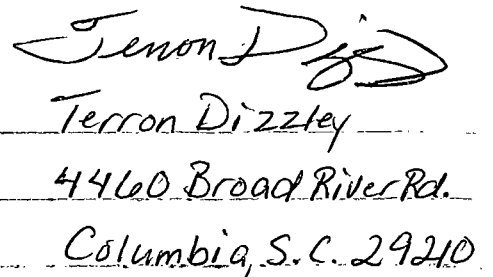 Terron Dizzley
Terron Dizzley
4460 Broad River Rd.
Columbia, S.C. 29210